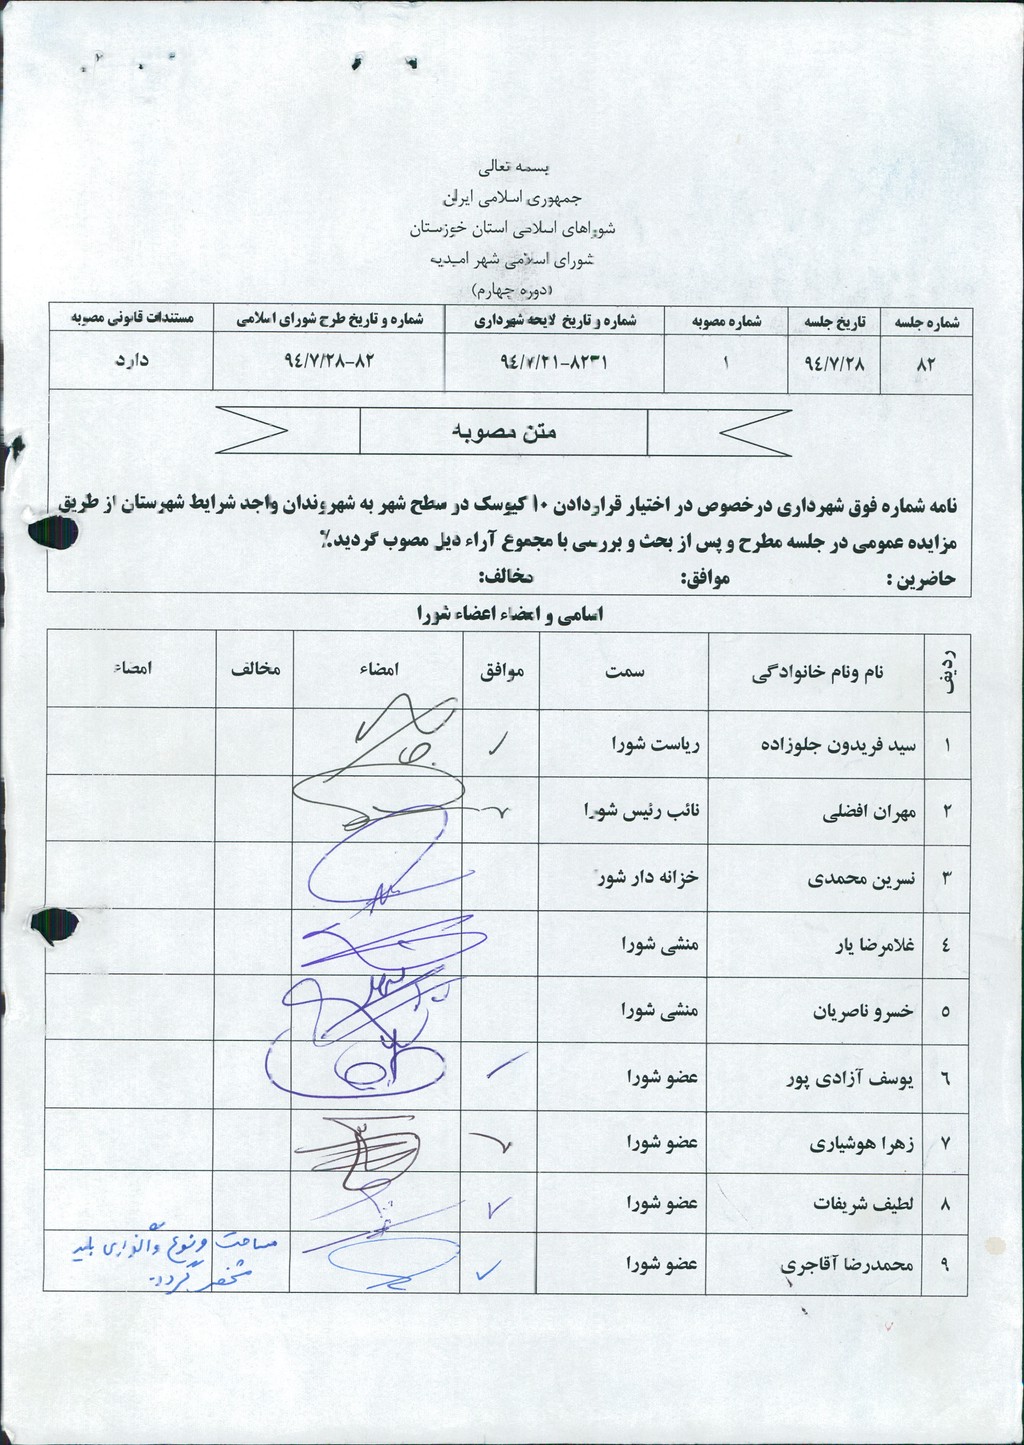 بسمه تعالی
جمهوری اسلامی ایران
شوراهای اسلامی استان خوزستان
شورای اسلامی شهر امیدیه
(دوره چهارم)
شماره جلسه تاریخ جلسه شماره مصوبه شماره و تاریخ لایحه شهرداری شماره و تاریخ طرح شورای اسلامی مستندات قانونی مصوبه
۸۲ ۹٤/۷/۲۸ ۱ ۹٤/۷/۲۱-۸۲۳۱ ۹٤/۷/۲۸-۸۲ دارد
متن مصوبه
نامه شماره فوق شهرداری درخصوص در اختیار قراردادن ۱۰ کیوسک در سطح شهر به شهروندان واجد شرایط شهرستان از طریق
مزایده عمومی در جلسه مطرح و پس از بحث و بررسی با مجموع آراء ذیل مصوب گردید٪
حاضرین : موافق: مخالف:
اسامی و امضاء اعضاء شورا
ردیف نام ونام خانوادگی سمت موافق امضاء مخالف امضاء
۱ سید فریدون جلوزاده ریاست شورا ✓
۲ مهران افضلی نائب رئیس شورا ✓
۳ نسرین محمدی خزانه دار شور
٤ غلامرضا یار منشی شورا
۵ خسرو ناصریان منشی شورا
٦ یوسف آزادی پور عضو شورا ✓
۷ زهرا هوشیاری عضو شورا ✓
۸ لطیف شریفات عضو شورا ✓
۹ محمدرضا آقاجری عضو شورا ✓
مساحت ونوع واگذاری باید
مشخص گردد.